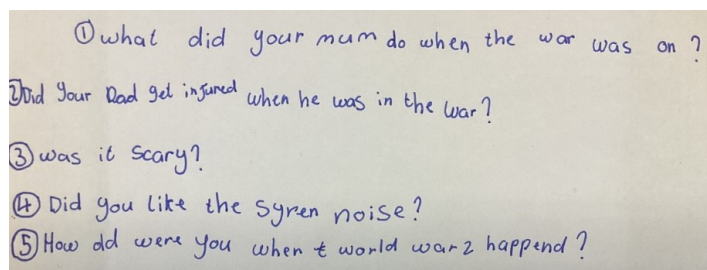 ① what did your mum do when the war was on ?
② Did your Dad get injured when he was in the war?
③ was it scary?
④ Did you like the syren noise?
⑤ How old were you when t world war 2 happend?